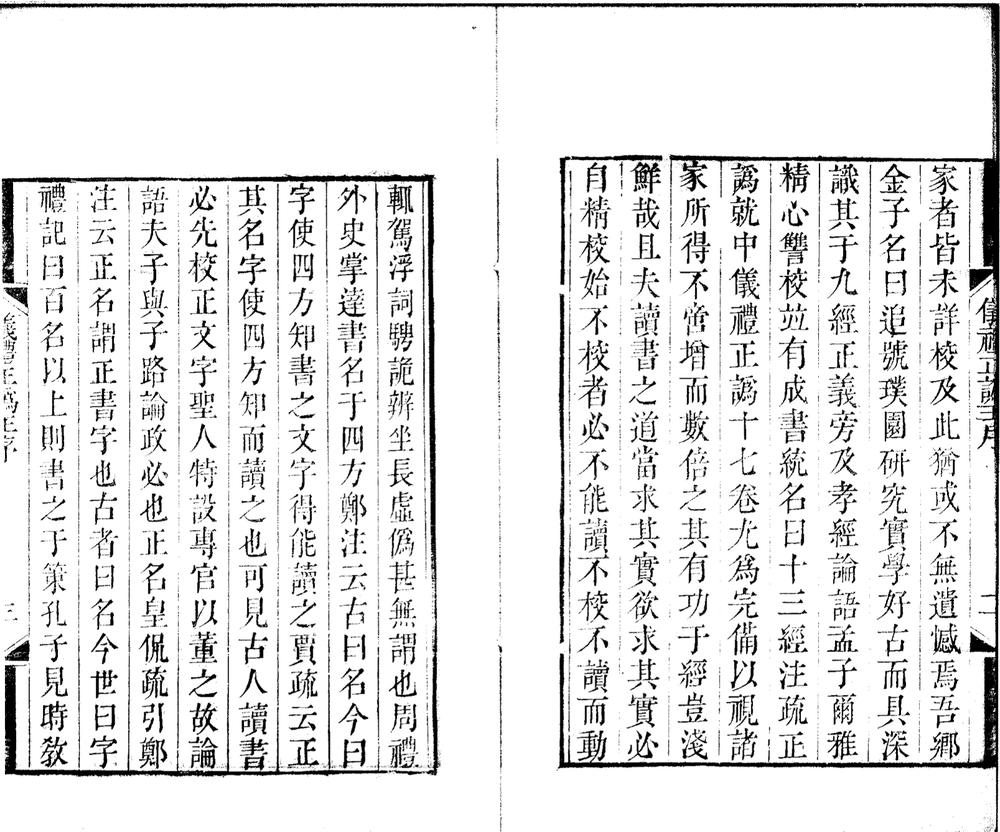 家者皆未詳校及此猶或不無遺憾焉吾鄉
金子名曰追號璞園研究實學好古而具深
識其于九經正義旁及孝經論語孟子爾雅
精心讐校竝有成書統名曰十三經注疏正
譌就中儀禮正譌十七卷尤為完備以視諸
家所得不啻增而數倍之其有功于經豈淺
鮮哉且夫讀書之道當求其實欲求其實必
自精校始不校者必不能讀不校不讀而動
輒駕浮詞騁詭辨坐長虛僞甚無謂也周禮
外史掌達書名于四方鄭注云古曰名今曰
字使四方知書之文字得能讀之賈疏云正
其名字使四方知而讀之也可見古人讀書
必先校正文字聖人特設專官以董之故論
語夫子與子路論政必也正名皇侃疏引鄭
注云正名謂正書字也古者曰名今世曰字
禮記曰百名以上則書之于策孔子見時敎
儀禮正譌王序
二
儀禮正譌王序
三